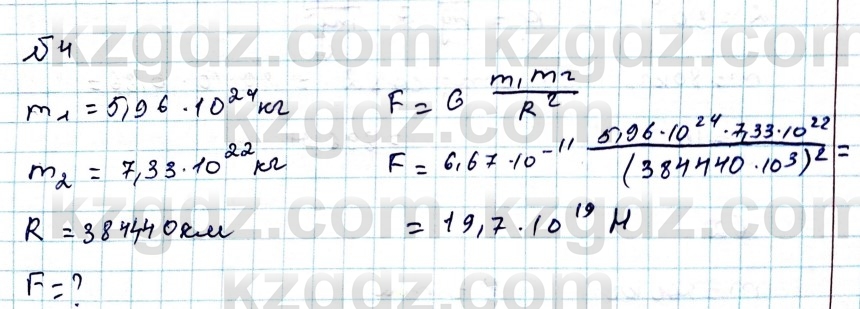 №4
m₁ = 5,96 · 10²⁴ кг
m₂ = 7,33 · 10²² кг
R = 384440 км
F = ?
F = G m₁ m₂ / R²
F = 6,67 · 10⁻¹¹ 5,96 · 10²⁴ · 7,33 · 10²² / (384440 · 10³)² =
= 19,7 · 10¹⁹ Н
kzgdz.com
kzgdz.com
kzgdz.com
kzgdz.com
kzgdz.com